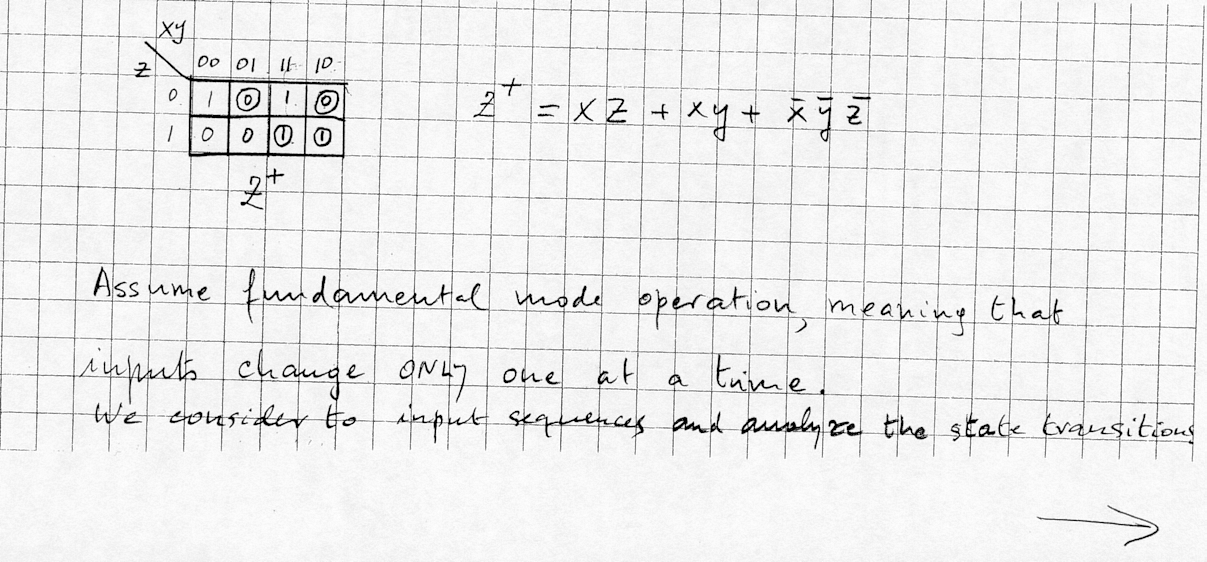 xy
z 00 01 11 10
0 1 0 1 0
1 0 0 1 1
z⁺
z⁺ = xz + xy + x̄ȳz̄
Assume fundamental mode operation, meaning that
inputs change ONLY one at a time.
We consider to input sequences and analyze the state transitions